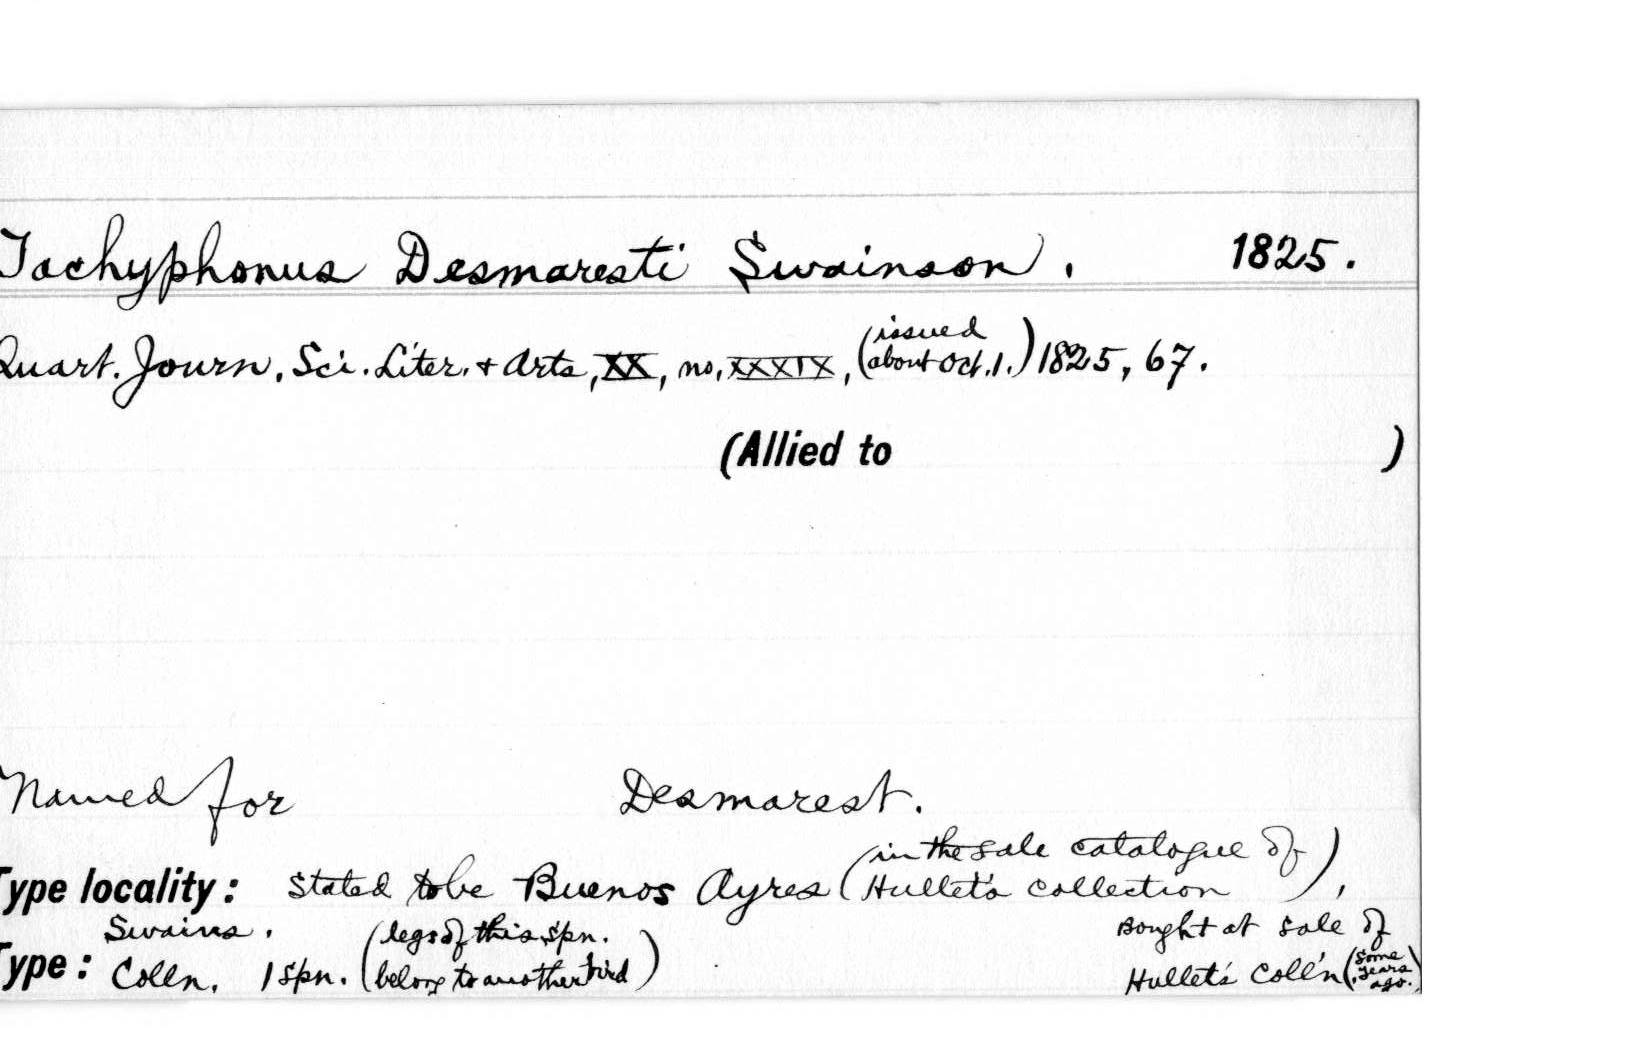 Tachyphonus Desmaresti Swainson. 1825.
Quart. Journ. Sci. Liter. + Arts, XX, no. XXXIX, (issued about Oct. 1.) 1825, 67.
(Allied to )
Named for Desmarest.
Type locality: Stated to be Buenos Ayres (in the sale catalogue of Hullet's collection),
Type: Swains. Colln. 1 spn. (legs of this spn. belong to another bird) Bought at sale of Hullet's Coll'n (some years ago.)